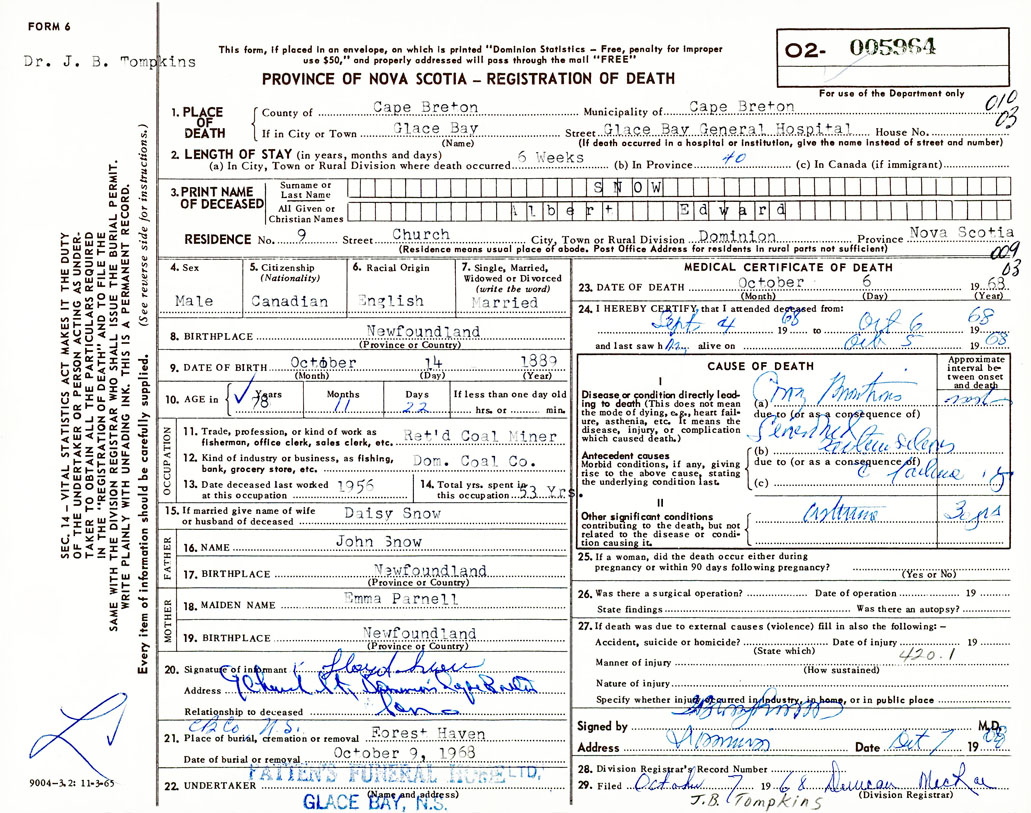 FORM 6
Dr. J. B. Tompkins
This form, if placed in an envelope, on which is printed "Dominion Statistics – Free, penalty for improper
use $50," and properly addressed will pass through the mail "FREE"
PROVINCE OF NOVA SCOTIA – REGISTRATION OF DEATH
02- 005964
For use of the Department only
010
03
1. PLACE OF DEATH
County of Cape Breton Municipality of Cape Breton
If in City or Town Glace Bay Street Glace Bay General Hospital House No.
(Name) (If death occurred in a hospital or institution, give the name instead of street and number)
2. LENGTH OF STAY (in years, months and days)
(a) In City, Town or Rural Division where death occurred 6 Weeks (b) In Province 40 (c) In Canada (if immigrant)
3. PRINT NAME OF DECEASED
Surname or Last Name SNOW
All Given or Christian Names Albert Edward
RESIDENCE No. 9 Street Church City, Town or Rural Division Dominion Province Nova Scotia
(Residence means usual place of abode. Post Office Address for residents in rural parts not sufficient)
009
03
4. Sex
Male
5. Citizenship
(Nationality)
Canadian
6. Racial Origin
English
7. Single, Married,
Widowed or Divorced
(write the word)
Married
8. BIRTHPLACE Newfoundland
(Province or Country)
9. DATE OF BIRTH October 14 1889
(Month) (Day) (Year)
10. AGE in Years Months Days If less than one day old
78 11 22 hrs. or min.
OCCUPATION
11. Trade, profession, or kind of work as
fisherman, office clerk, sales clerk, etc. Ret'd Coal Miner
12. Kind of industry or business, as fishing,
bank, grocery store, etc. Dom. Coal Co.
13. Date deceased last worked
at this occupation 1956
14. Total yrs. spent in
this occupation 53 Yrs.
15. If married give name of wife
or husband of deceased Daisy Snow
FATHER
16. NAME John Snow
17. BIRTHPLACE Newfoundland
(Province or Country)
MOTHER
18. MAIDEN NAME Emma Parnell
19. BIRTHPLACE Newfoundland
(Province or Country)
20. Signature of informant Floyd Snow
Address 9 Church St. Dominion Cape Breton
Relationship to deceased Son
C.B.Co. N.S.
21. Place of burial, cremation or removal Forest Haven
Date of burial or removal October 9, 1968
22. UNDERTAKER PATTEN'S FUNERAL HOME LTD.
(Name and address)
GLACE BAY, N.S.
MEDICAL CERTIFICATE OF DEATH
23. DATE OF DEATH October 6 1968
(Month) (Day) (Year)
24. I HEREBY CERTIFY, that I attended deceased from:
Sept 4 1968 to Oct 6 1968
and last saw him alive on Oct 5 1968
CAUSE OF DEATH
Approximate
interval be-
tween onset
and death
I
Disease or condition directly lead-
ing to death (This does not mean
the mode of dying, e.g., heart fail-
ure, asthenia, etc. It means the
disease, injury, or complication
which caused death.)
(a)
due to (or as a consequence of)
Antecedent causes
Morbid conditions, if any, giving
rise to the above cause, stating
the underlying condition last.
(b)
due to (or as a consequence of)
(c)
II
Other significant conditions
contributing to the death, but not
related to the disease or condi-
tion causing it.
3 yrs
25. If a woman, did the death occur either during
pregnancy or within 90 days following pregnancy?
(Yes or No)
26. Was there a surgical operation? Date of operation 19
State findings Was there an autopsy?
27. If death was due to external causes (violence) fill in also the following: –
Accident, suicide or homicide? Date of injury 19
(State which) 420.1
Manner of injury
(How sustained)
Nature of injury
Specify whether injury occurred in industry, in home, or in public place
Signed by M.D.
Address Dominion Date Oct 7 1968
28. Division Registrar's Record Number
29. Filed October 7 1968 Duncan MacRae
(Division Registrar)
J.B. Tompkins
SEC. 14 – VITAL STATISTICS ACT MAKES IT THE DUTY
OF THE UNDERTAKER OR PERSON ACTING AS UNDER-
TAKER TO OBTAIN ALL THE PARTICULARS REQUIRED
IN THE "REGISTRATION OF DEATH" AND TO FILE THE
SAME WITH THE DIVISION REGISTRAR WHO SHALL ISSUE THE BURIAL PERMIT.
WRITE PLAINLY WITH UNFADING INK. THIS IS A PERMANENT RECORD.
Every item of information should be carefully supplied. (See reverse side for instructions.)
9004-3.2: 11-3-65